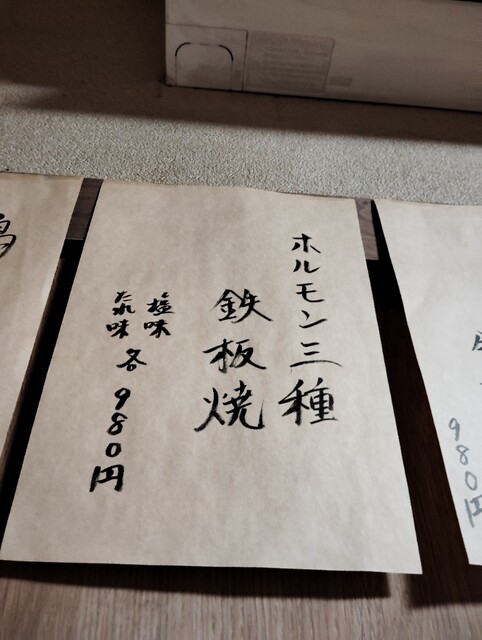 ホルモン三種
鉄板焼
塩味
たれ味 各 980円
980円